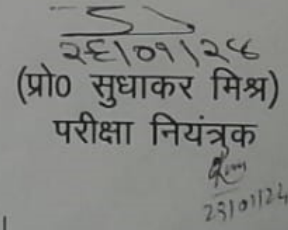 २६/०१/२४
(प्रो० सुधाकर मिश्र)
परीक्षा नियंत्रक
23/01/24